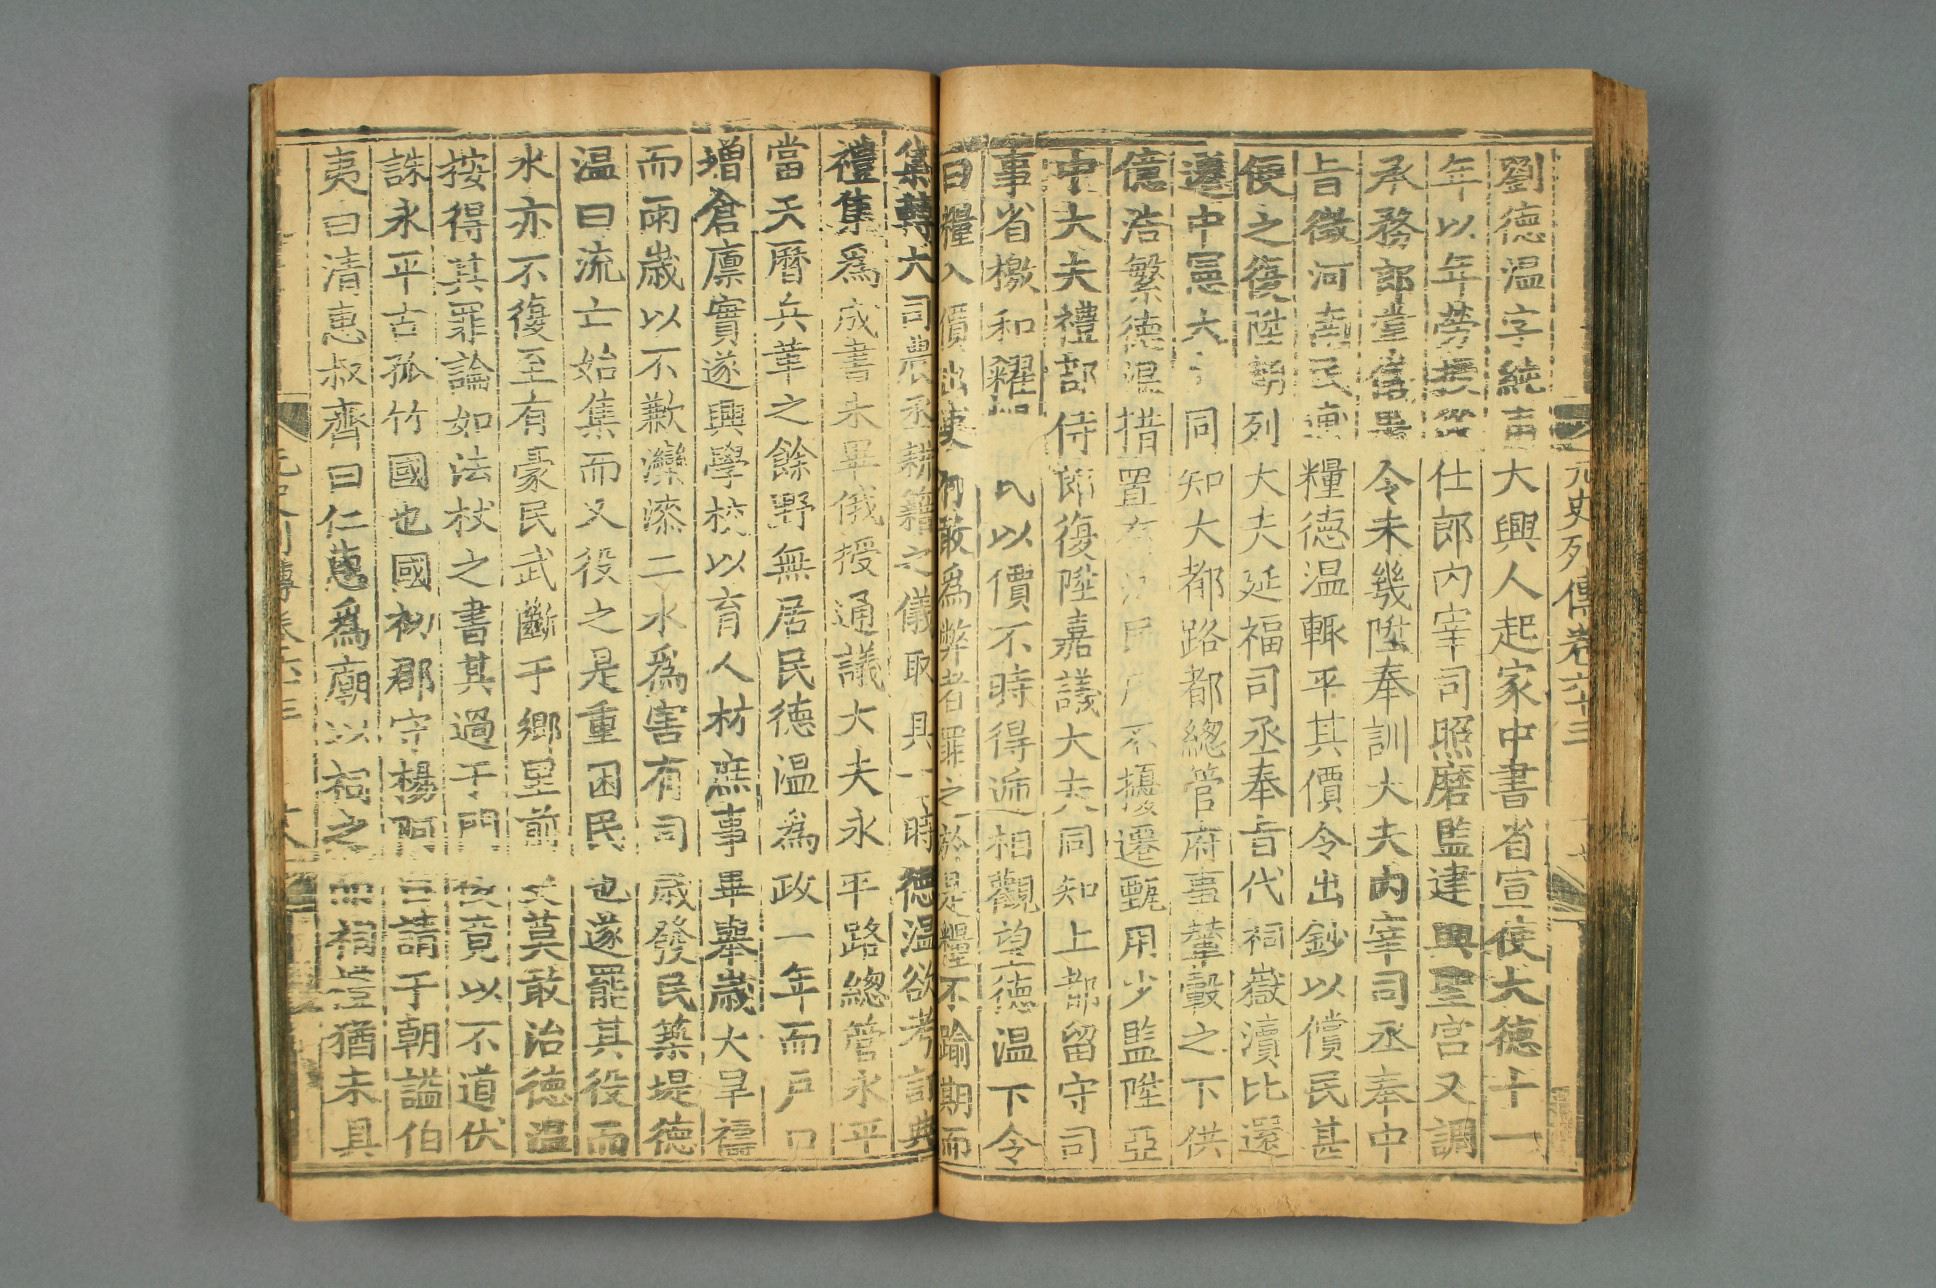 元史列傳卷六十三
劉德温字純甫大興人起家中書省宣使大德十一
年以年勞授從仕郎内宰司照磨監建興聖宫又調
承務郎掌儀署令未幾陞奉訓大夫内宰司丞奉中
旨徵河南民逋糧德温輙平其價令出鈔以償民甚
便之復陞朝列大夫延福司丞奉旨代祠嶽瀆比還
遷中憲大夫同知大都路都總管府事輦轂之下供
億浩繁德温措置有法民用不擾遷甄用少監陞亞
中大夫禮部侍郎復陞嘉議大夫同知上都留守司
事省檄和糴 民以價不時得逓相觀望德温下令
曰糧入價出吏有敢爲弊者罪之於是糧不踰期而
集轉大司農丞耕籍之儀取具一時德温欲考訂典
禮集爲成書未畢俄授通議大夫永平路總管永平
當天曆兵革之餘野無居民德温爲政一年而户口
增倉廪實遂興學校以育人材庶事畢舉歲大旱禱
而雨歲以不歉灤漆二水爲害有司歲發民築堤德
温曰流亡始集而又役之是重困民也遂罷其役而
水亦不復至有豪民武斷于鄉里前 莫敢治德温
按得其罪論如法杖之書其過于門 竟以不道伏
誅永平古孤竹國也國初郡守楊阿台請于朝謚伯
夷曰清惠叔齊曰仁惠爲廟以祠之然祠禮猶未具